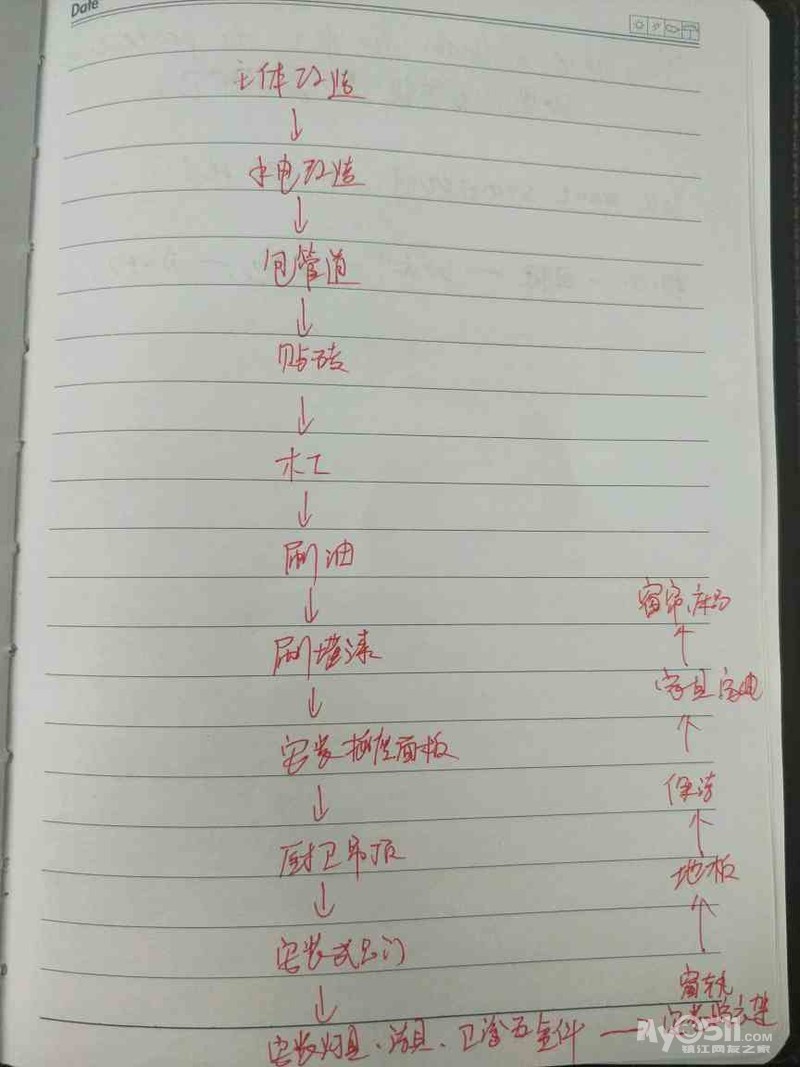 Date
主体改造
↓
水电改造
↓
包管道
↓
贴砖
↓
木工
↓
刷油
↓
刷墙漆
↓
安装插座面板
↓
厨卫吊顶
↓
安装式门
↓
安装灯具、洁具、卫浴五金件 → 安装晾衣架
窗轨
↑
地板
↑
保洁
↑
家具家电
↑
窗帘、床品
my0511.com
镇江网友之家